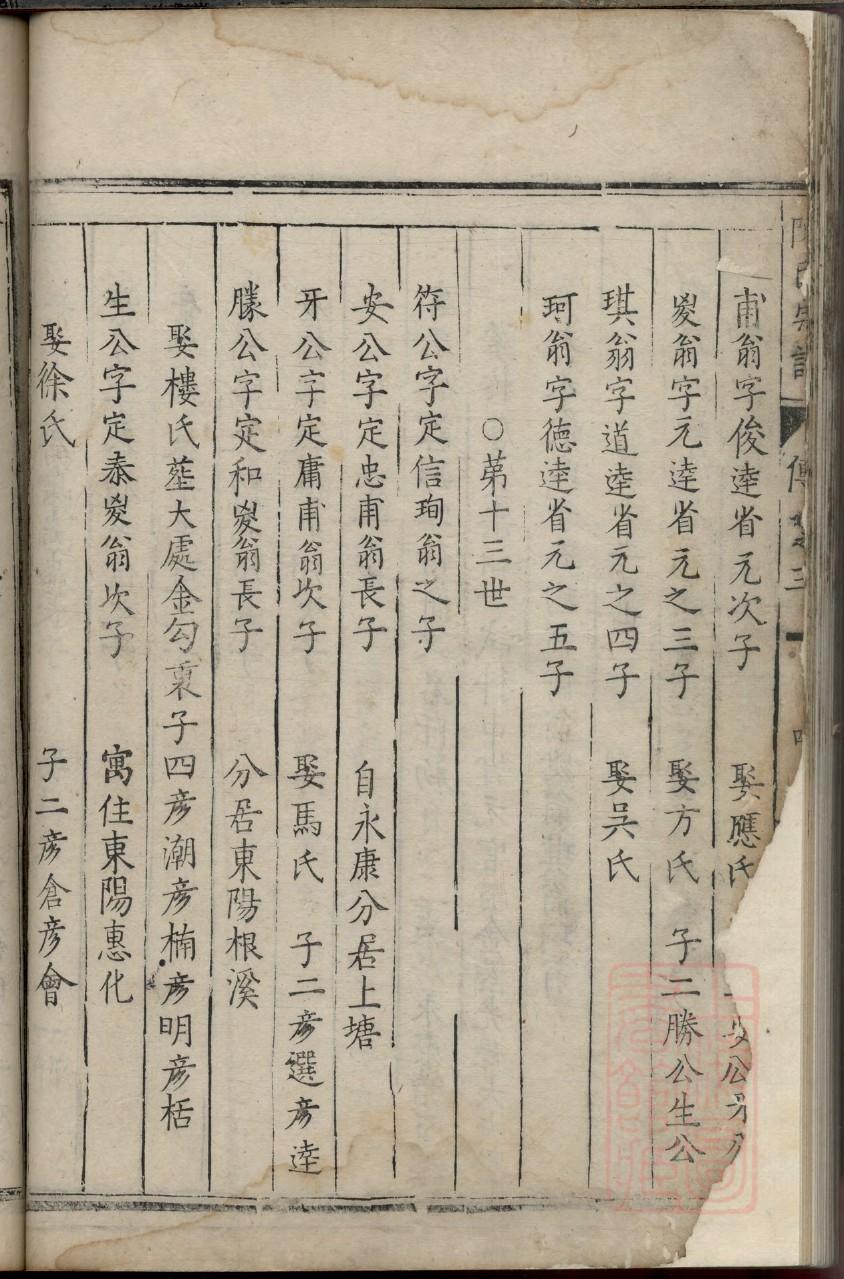 甫翁字俊逵省元次子　娶應氏　安公牙
㚇翁字元逵省元之三子　娶方氏　子二勝公生公
琪翁字道逵省元之四子　娶吳氏
珂翁字德逵省元之五子
○苐十三世
符公字定信珣翁之子
安公字定忠甫翁長子　自永康分居上塘
牙公字定庸甫翁次子　娶馬氏　子二彥選彥逵
勝公字定和㚇翁長子　分居東陽根溪
娶樓氏塟大處金勾裏子四彥潮彥楠彥明彥栝
生公字定泰㚇翁次子　寓住東陽惠化
娶徐氏　子二彥倉彥會